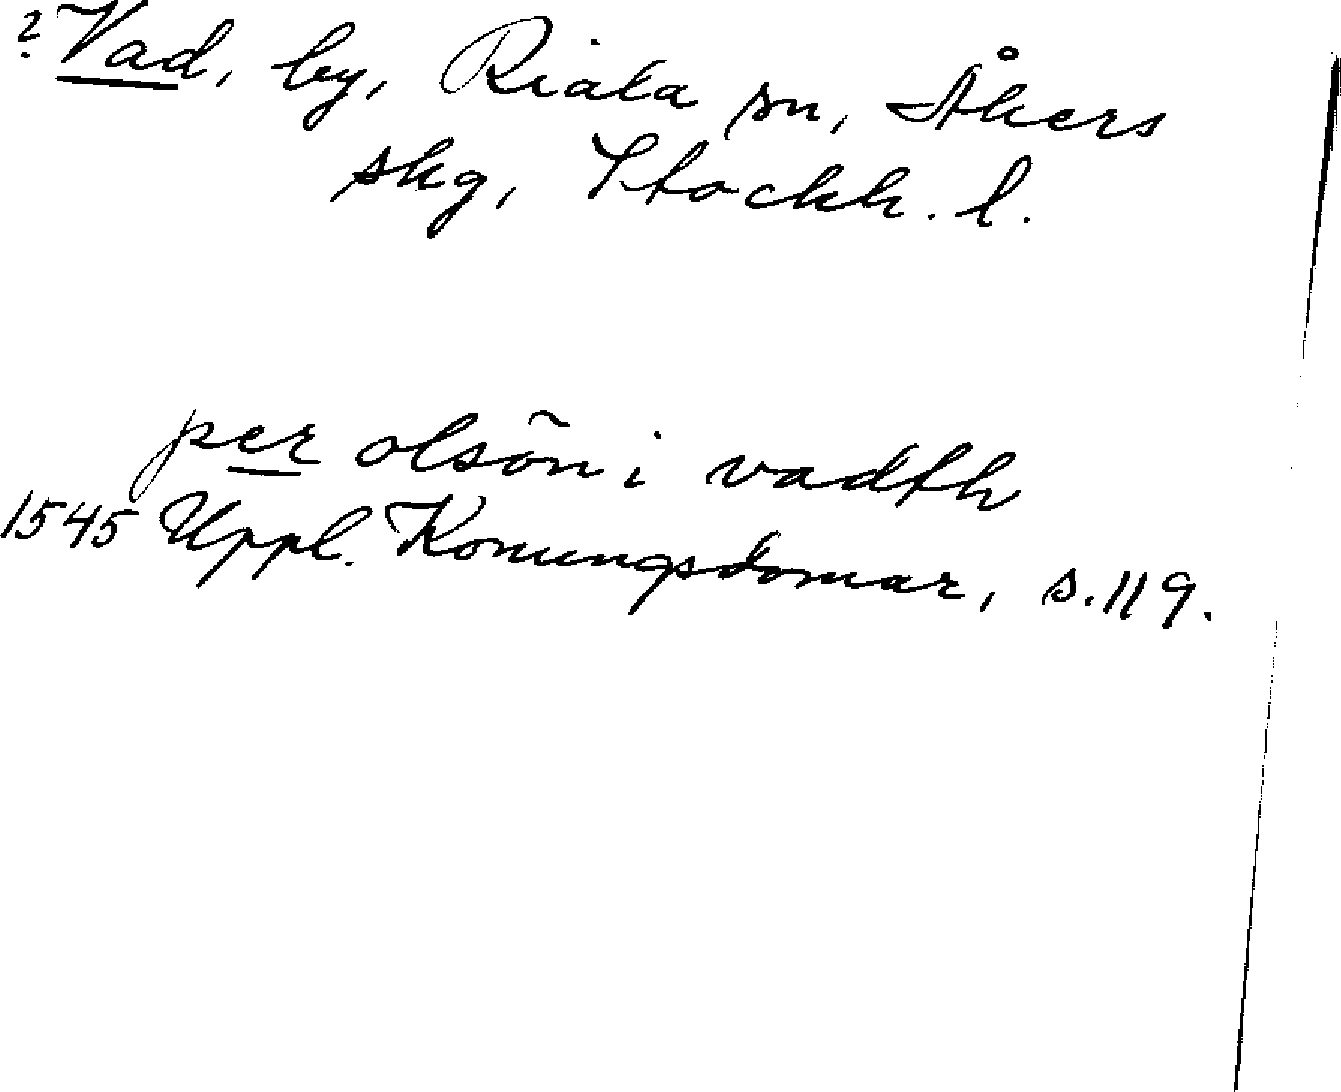 ? Vad, by, Riala sn, Åkers
skg, Stockh. l.
per olsōn i vadth
1545 Uppl. Konungsdomar, s. 119.